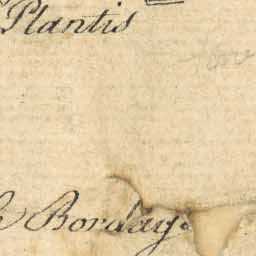 Plantis
Borday.